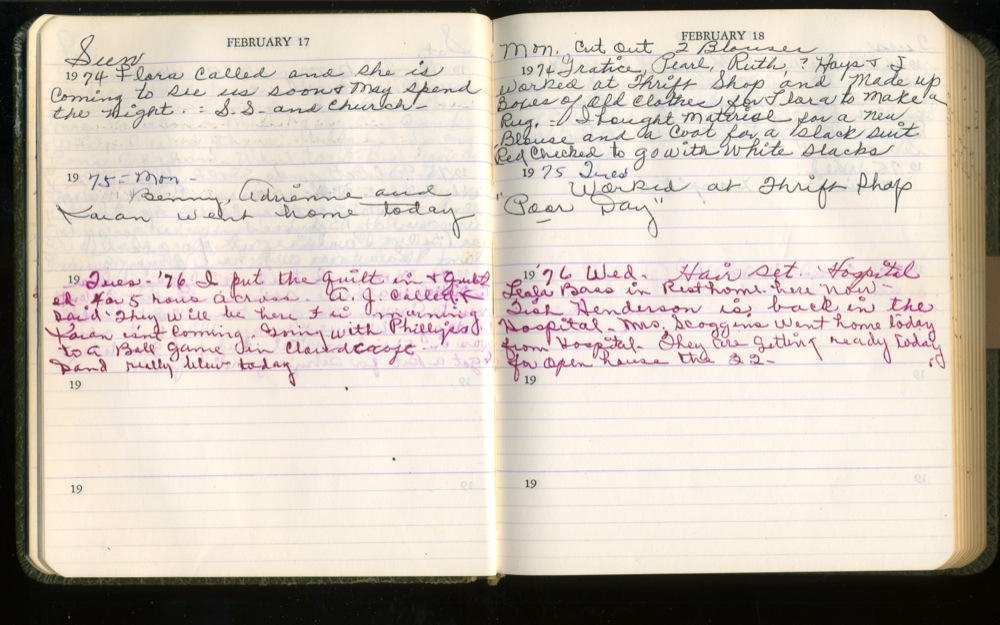 FEBRUARY 17
Sun
1974 Flora called and she is
coming to see us soon & may spend
the night. = S.S. and church -
1975 = Mon -
Benny, Adrianne and
Karan went home today
19 Tues - '76 I put the quilt in & quilt
ed for 5 rows across. A.J. called &
said they will be here in morning
Karan isn't coming. Going with Phillips
to a Ball game in Cloudcroft
Sand really blew today
19
19
FEBRUARY 18
Mon. Cut out 2 Blouses
1974 Gratice, Pearl, Ruth, ? Hays & I
worked at Thrift Shop and I made up
Boxes of old clothes for Flora to make a
Rug. = I bought material for a new
Blouse and a coat for a slack suit
Red checked to go with white slacks
1975 Tues
Worked at Thrift Shop
"Poor Day"
19 '76 Wed. Hair set. Hospital
Bass in Rest home here now -
Tish Henderson is back in the
Hospital - Mrs. Scoggins went home today
from Hospital - They are getting ready today
for open house the 22 -
19
19